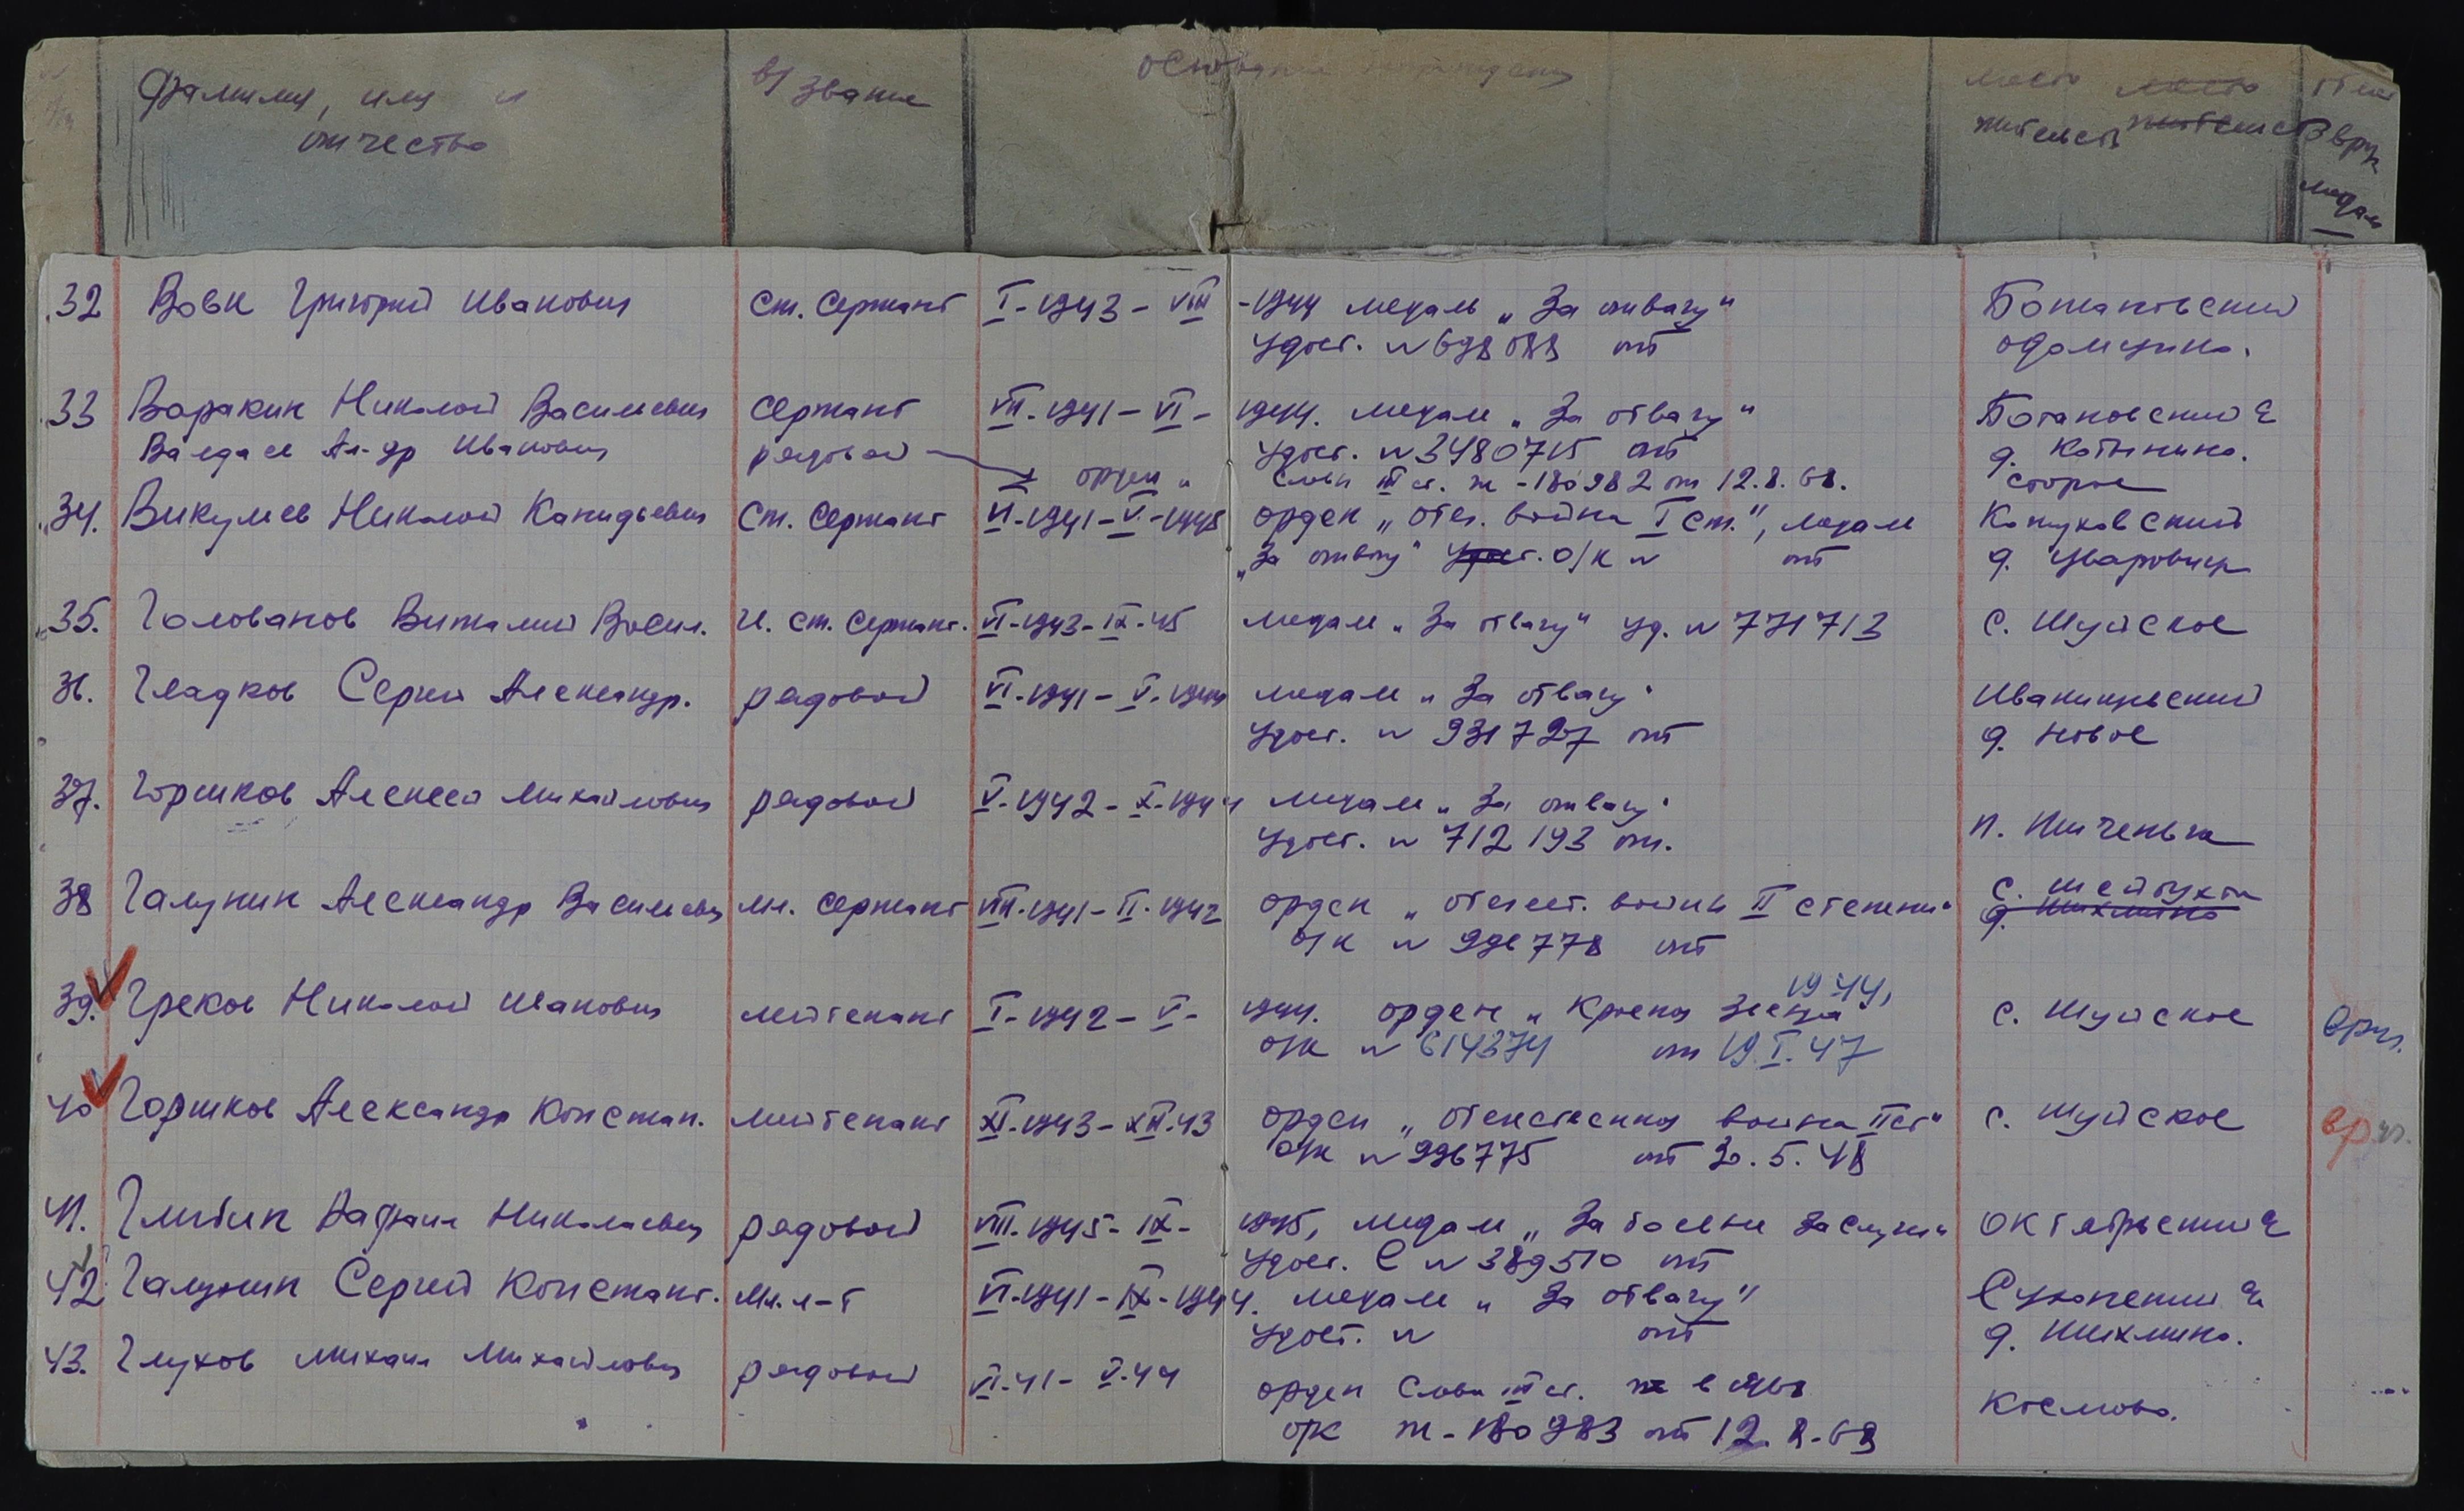 Фамилия, имя и отчество
в/звание
место жительств
32 Вовк Григорий Иванович ст. сержант I-1943- VIII -1944 медаль „За отвагу" Ботановский
удост. № 698088 от
33 Варакин Николай Васильевич сержант VII-1941- VI- 1944. медаль „За отвагу" Ботановский
Валдаев Ал-др Иванович рядовой удост. № 3480715 от д. Котынино.
орден „ Славы III ст. ж -180982 от 12.8.68.
34. Викулов Николай ст. сержант VI-1941-V-1945 орден „Отеч. война I ст.", медаль
„За отвагу" о/к № от д. Уваровица
35. Голованов Виталий Васил. г. ст. сержант. VI-1943-IX-45 медаль „За отвагу" уд. № 771713 с. Шуйское
36. Гладков Сергей Александр. рядовой VI-1941- V-1944 медаль „За отвагу" Иваницкский
удост. № 931727 от д. Новое
37. Горшков Алексей Михайлович рядовой V-1942- X-1944 медаль „За отвагу"
удост. № 712193 от. п. Пиченьга
38 Галунин Александр Васильевич мл. сержант VIII-1941-II-1942 орден „Отечест. войны II степени" с. Шейбухта
о/к № 996778 от д. Шихмино
39. Греков Николай Иванович лейтенант I-1942- V- 1944. орден „Красная Звезда" 1944, с. Шуйское вруч.
о/к № 614374 от 19.I.47
40 Горшков Александр Констан. лейтенант XI-1943-XII.43 орден „Отечественная война II ст" с. Шуйское вруч.
о/к № 996775 от 30.5.48
41. Николаевич рядовой VIII-1945- IX- 1945, медаль „За боевые заслуги" Октябрьский
удост. Е № 389510 от
42 Галунин Сергей Констант. мл. л-т VI-1941-IX-1944. медаль „За отвагу"
удост. № от д. Шихмино.
43. Глухов Михаил Михайлович рядовой VI.41- V.44 орден Славы III ст.
о/к ж-180983 от 12.8.68 Косиково.